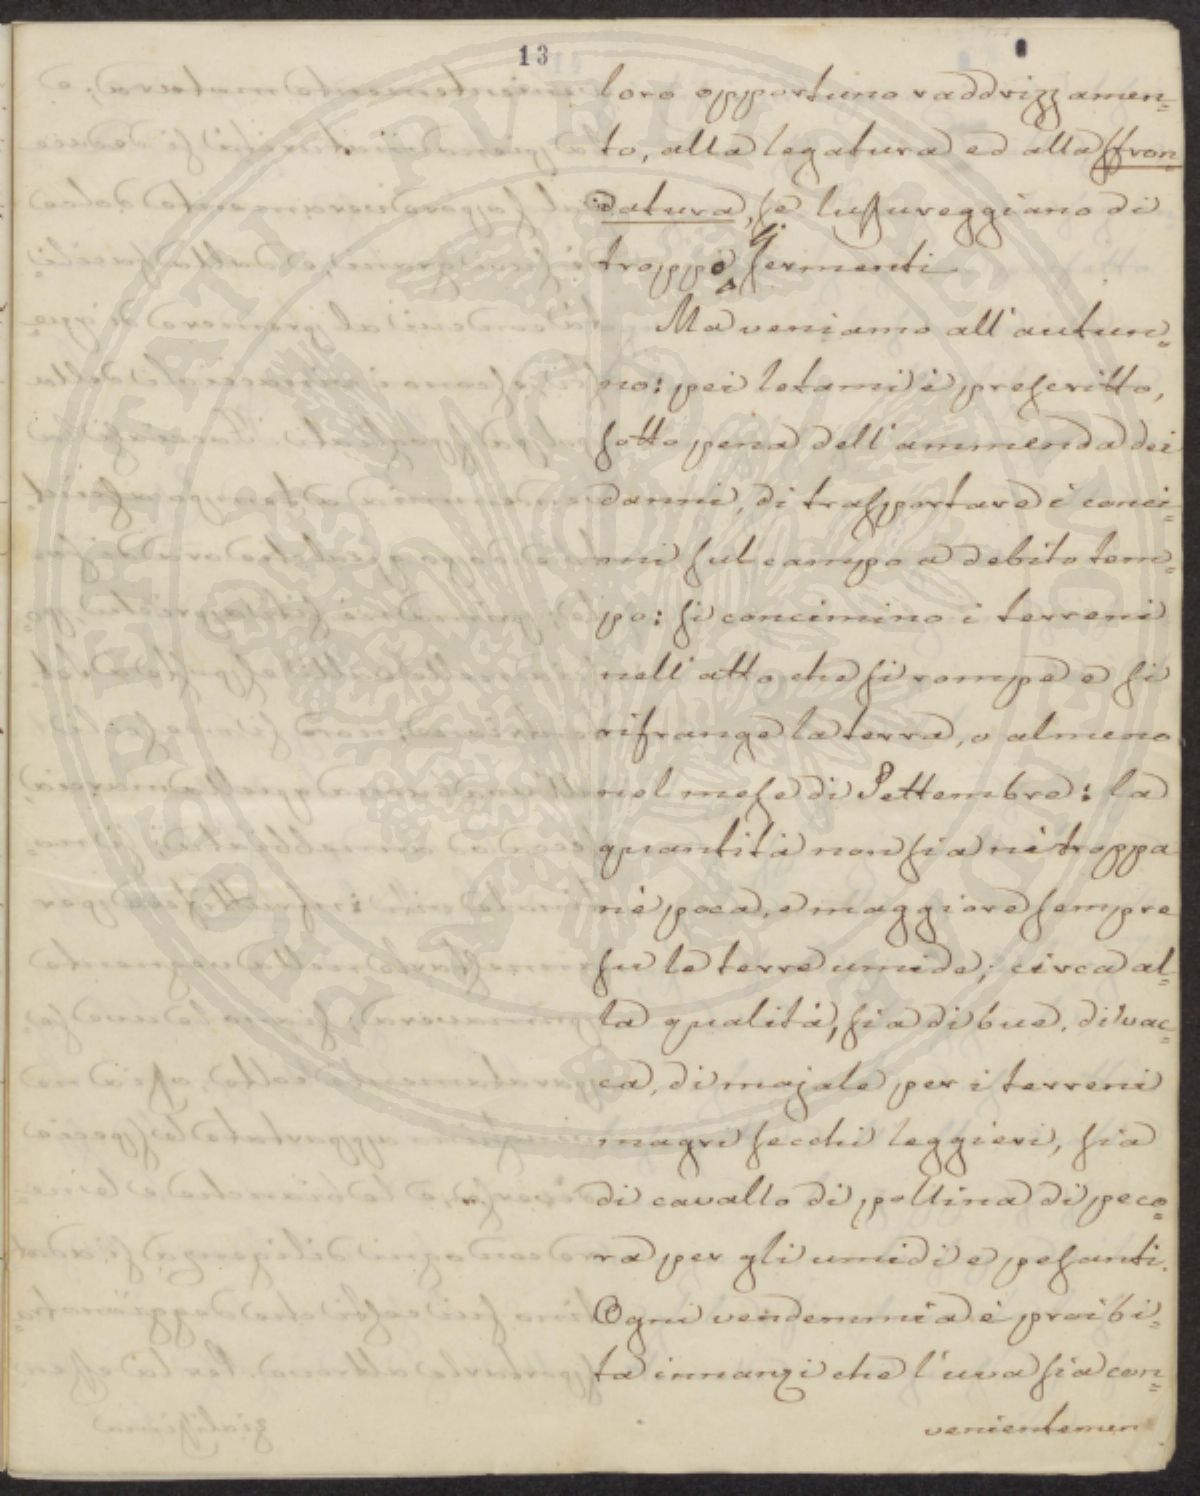 13
loro opportuno raddrizzamen=
to, alla legatura ed alla sfron=
datura, se lussureggiano di
troppo germenti
Ma veniamo all'autun=
no: pei letami è prescritto,
sotto pena dell'ammenda dei
danni, di trasportare i conci=
mi sul campo a debito tem=
po: si concimino i terreni
nell'atto che si rompe e si
rifrange la terra, o almeno
nel mese di Settembre: la
quantità non sia nè troppa
nè poca, e maggiore sempre
su le terre umide; circa al=
la qualità, sia di bue, di vac=
ca, di majale per i terreni
magri secchi leggieri, sia
di cavallo di pollina di peco=
ra per gli umidi e pesanti.
Ogni vendemmia è proibi=
ta innanzi che l'uva sia con=
venientemen